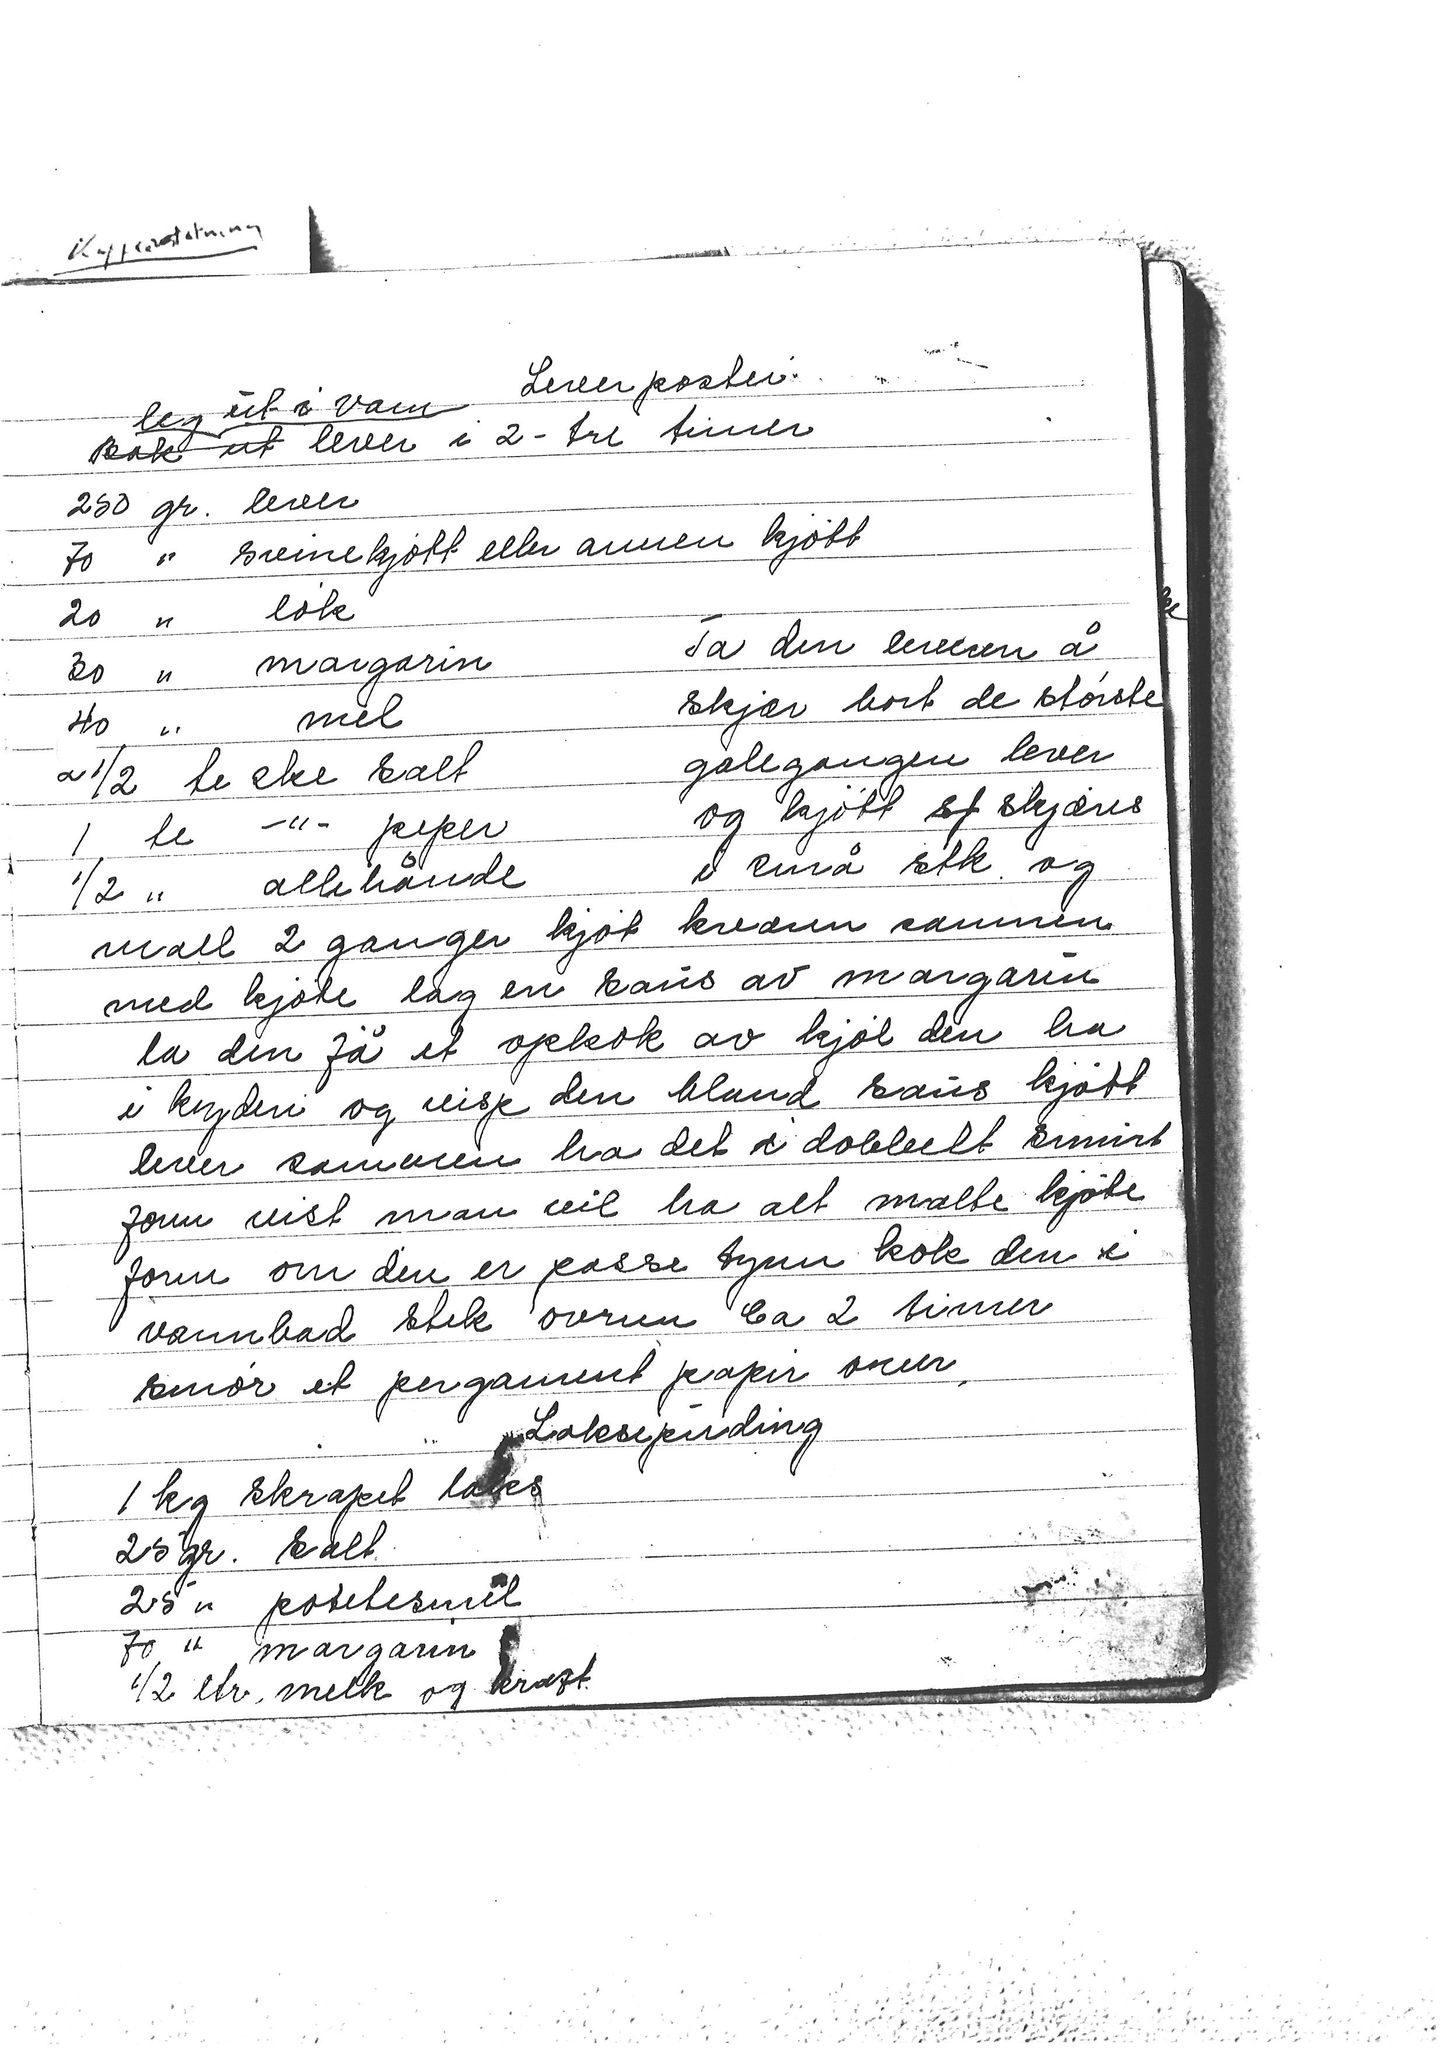 Kaffeerstatning
Leverpostei.
leg ut i vam
kok ut lever i 2-tre timer
250 gr. lever
70 " sveinekjøtt eller annen kjøtt
20 " løk
30 " margarin
40 " mel
2 1/2 te ske salt
1 te -"- peper
1/2 " allehånde
Ta den leveren å
skjær bort de største
galegangen lever
og kjøtt skjæres
i små stk. og
mall 2 ganger kjøt kværn sammen
med kjøte lag en saus av margarin
la den få et opkok av kjøl den ha
i kryderi og visp den bland saus kjøtt
lever sammen ha det i dobbelt smurt
form vist man vil ha alt malte kjøte
form om den er passe tynn kok den i
vannbad stek ovnen ca 2 timer
smør et pergament papir over.
Laksepuding
1 kg skrapet laks
25 gr. salt
25 " potetesmel
70 " margarin
1/2 ltr. melk og kraft